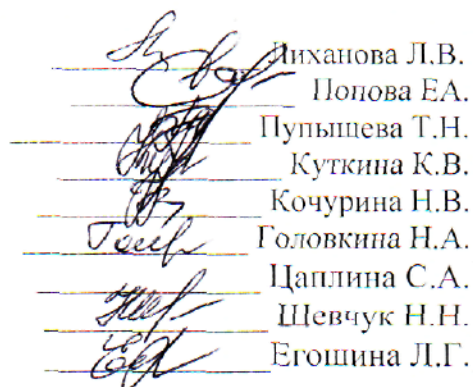 Лиханова Л.В.
Попова Е.А.
Пупышева Т.Н.
Куткина К.В.
Кочурина Н.В.
Головкина Н.А.
Цаплина С.А.
Шевчук Н.Н.
Егошина Л.Г.